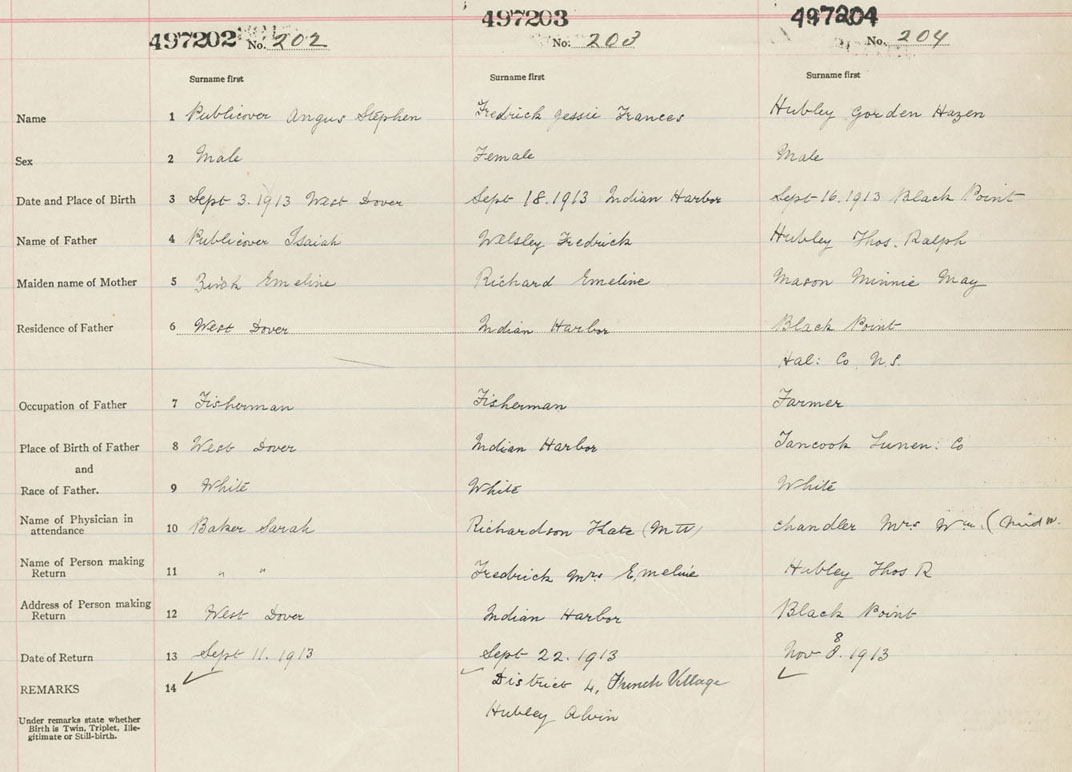 497202 No. 202
497203
No. 203
497204
No. 204
Surname first Surname first Surname first
Name 1 Publicover Angus Stephen Fredrick Jessie Frances Hubley Gorden Hazen
Sex 2 Male Female Male
Date and Place of Birth 3 Sept 3. 1913 West Dover Sept 18. 1913 Indian Harbor Sept 16. 1913 Black Point
Name of Father 4 Publicover Isaiah Welsley Fredrick Hubley Thos. Ralph
Maiden name of Mother 5 Emeline Richard Emeline Mason Minnie May
Residence of Father 6 West Dover Indian Harbor Black Point
Hal: Co N.S.
Occupation of Father 7 Fisherman Fisherman Farmer
Place of Birth of Father 8 West Dover Indian Harbor Tancook Lunen: Co
and
Race of Father. 9 White White White
Name of Physician in
attendance 10 Baker Sarah Richardson Kate Chandler Mrs Wm. (Midw.
Name of Person making
Return 11 " " Fredrick Mrs Emeline Hubley Thos R
Address of Person making
Return 12 West Dover Indian Harbor Black Point
Date of Return 13 Sept 11. 1913 Sept 22. 1913 Nov 8. 1913
REMARKS 14 District 4, French Village
Hubley Alvin
Under remarks state whether
Birth is Twin, Triplet, Ille-
gitimate or Still-birth.